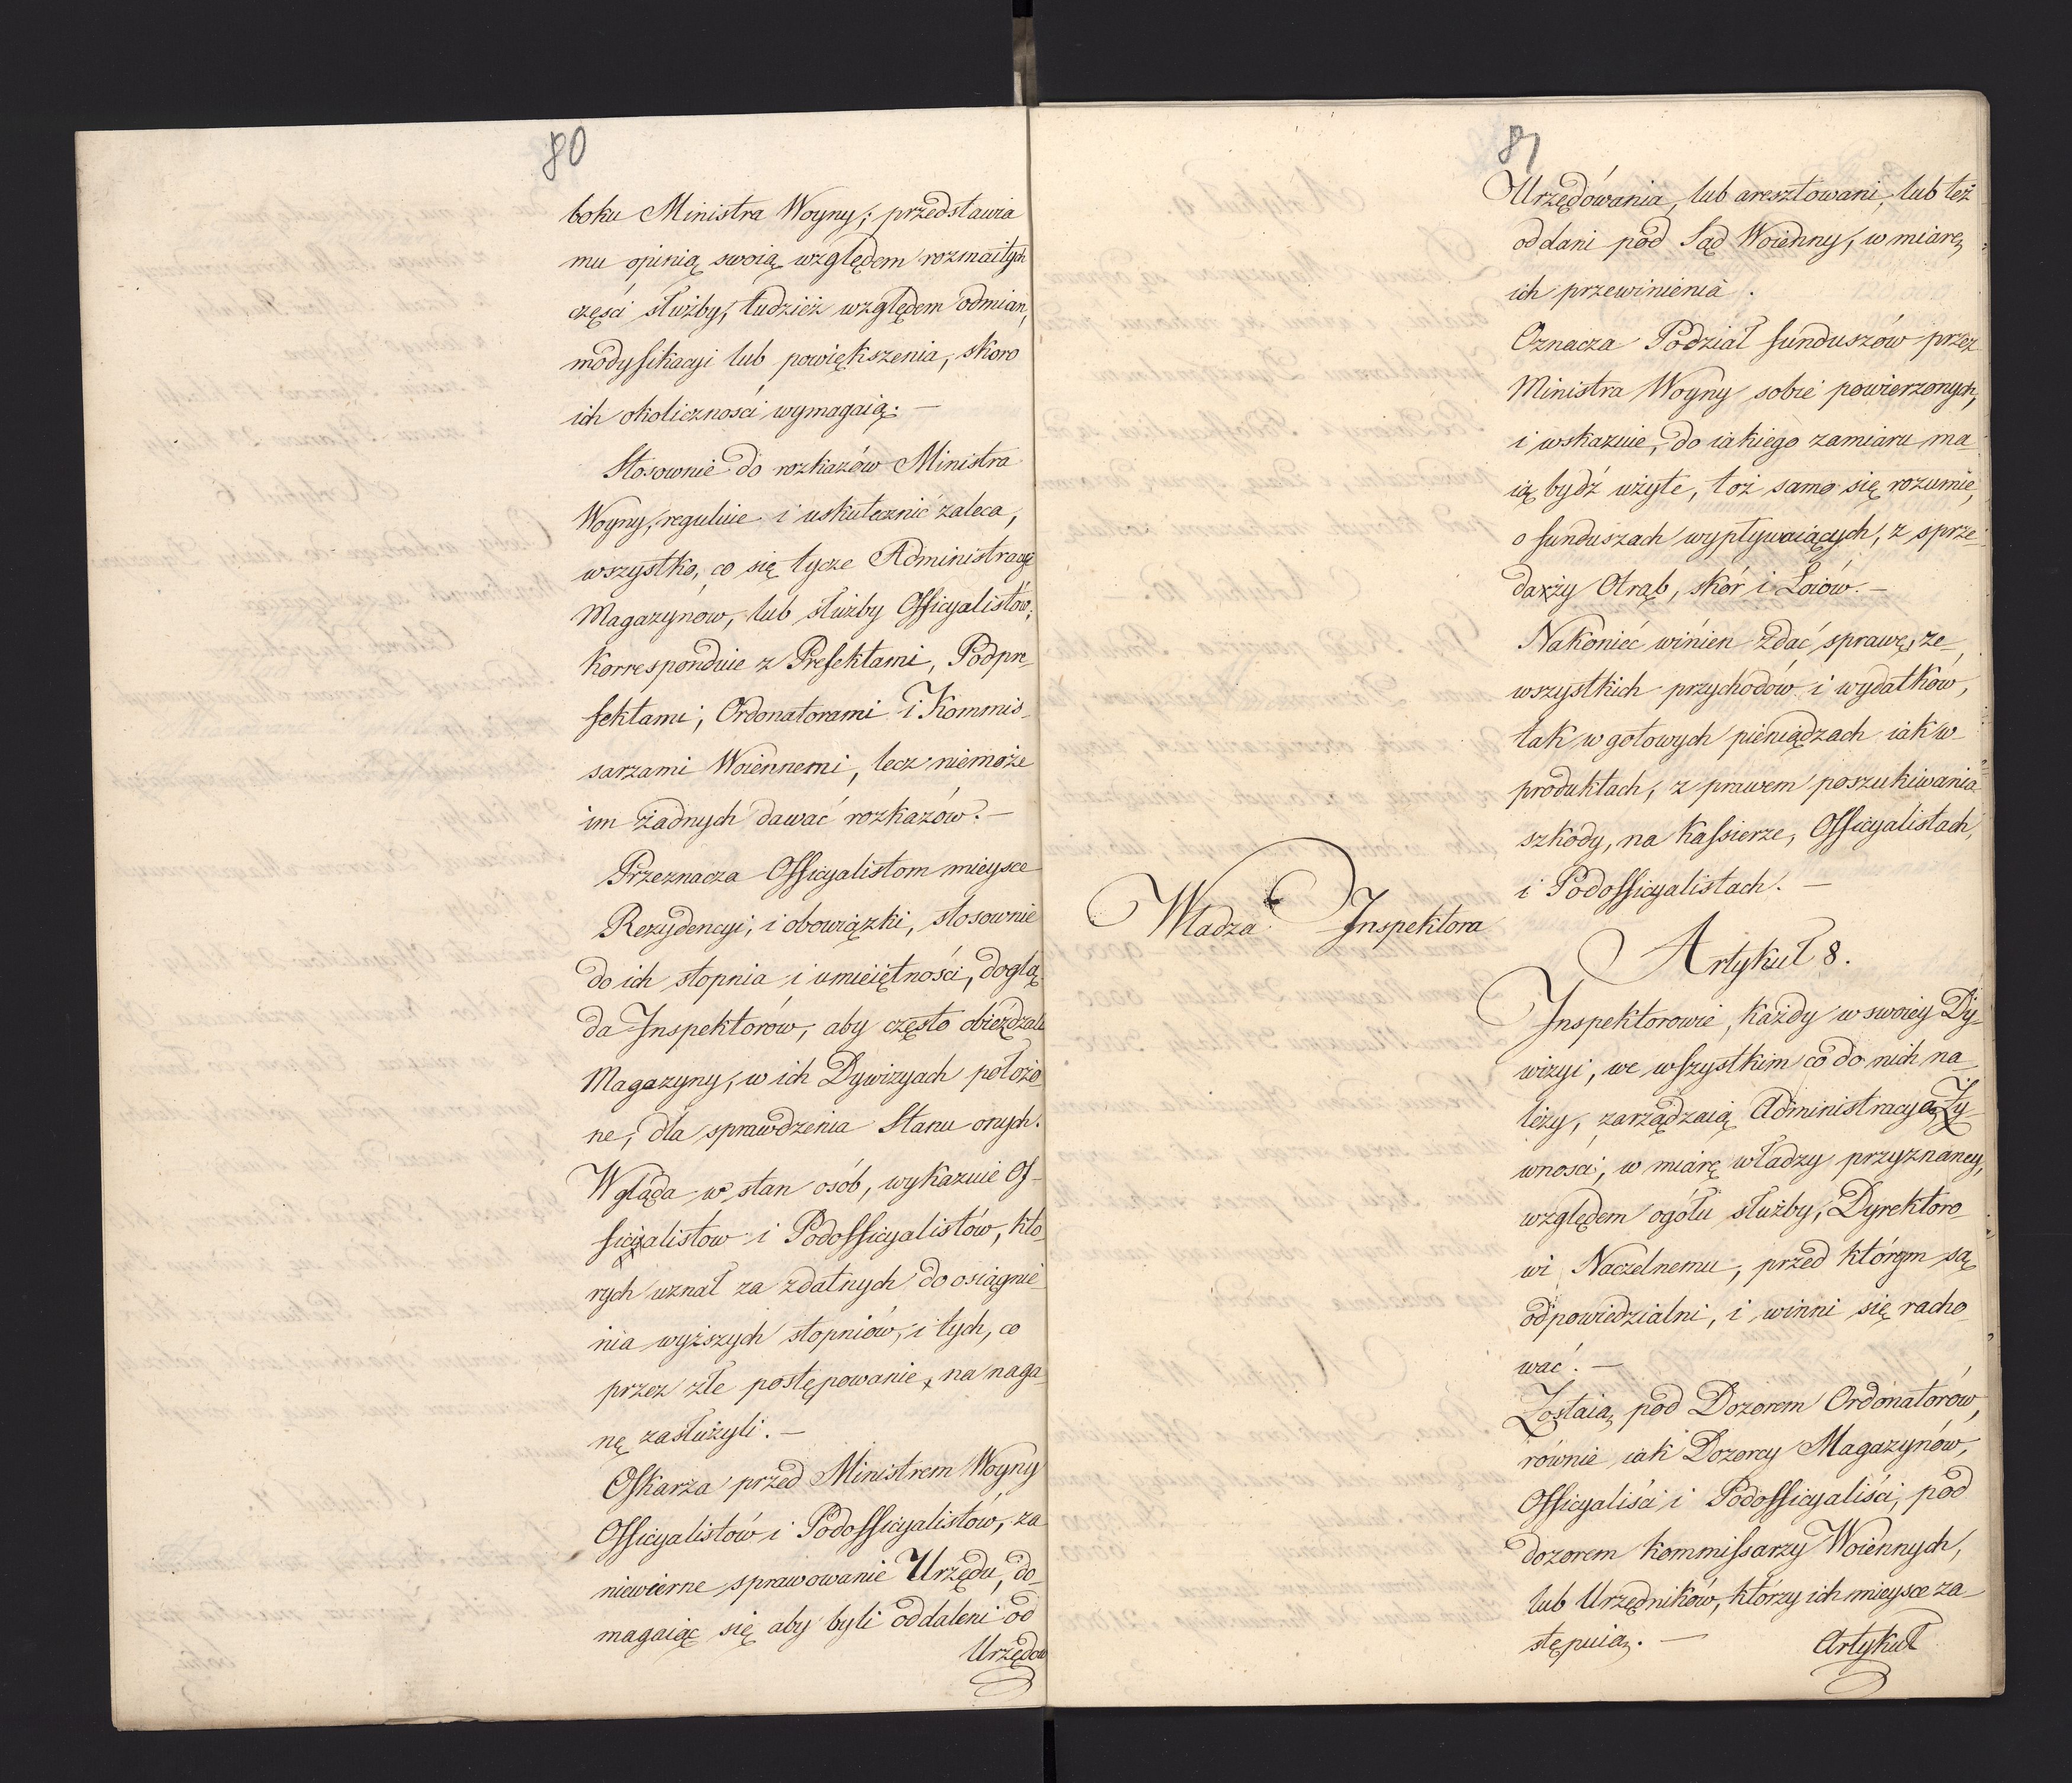 80
boku Ministra Woyny; przedstawia
mu opinią swoią względem rozmaitych
części służby, tudzież względem odmian,
modyfikacyi lub powiększenia, skoro
ich okoliczności wymagaią. —
Stosownie do rozkazów Ministra
Woyny, reguluie i uskutecznić zaleca,
wszystko, co się tycze Administracyi
Magazynów, lub służby Officyalistów,
Korresponduie z Prefektami, Podpre-
fektami, Ordonatorami i Kommis-
sarzami Woiennemi, lecz niemoże
im żadnych dawać rozkazów. —
Przeznacza Officyalistom mieysce
Rezydencyi, i obowiązki, stosownie
do ich stopnia i umieiętności, doglą-
da Inspektorów, aby często obieżdżali
Magazyny, w ich Dywizyach położo-
ne, dla sprawdzenia Stanu onych.
Wgląda w stan osób, wykazuie Of-
ficyalistow i Podofficyalistów, któ-
rych uznał za zdatnych do osiągnie-
nia wyższych stopniów, i tych, co
przez złe postępowanie, na naga-
nę zasłużyli. —
Oskarża przed Ministrem Woyny
Officyalistów i Podofficyalistów, za
niewierne sprawowanie Urzędu, do-
magaiąc się aby byli oddaleni od
Urzędow
81
Urzędowania, lub aresztowani, lub też
oddani pod Sąd Woienny, w miarę
ich przewinienia.
Oznacza Podział funduszów przez
Ministra Woyny sobie powierzonych,
i wskazuie, do iakiego zamiaru ma-
ią bydź użyte, toż samo się rozumie,
o funduszach wypływaiących, z sprze-
daży Otrąb, skór i Łoiów. —
Nakoniec winien zdać sprawę, ze
wszystkich przychodów i wydatków,
tak w gotowych pieniądzach iak w
produktach, z prawem poszukiwania
szkody, na Kassierze, Officyalistach,
i Podofficyalistach. —
Władza Inspektora
Artykuł 8.
Inspektorowie, każdy w swoiey Dy-
wizyi, we wszystkim co do nich na-
leży, zarządzaią Administracyą Ży-
wności, w miarę władzy przyznaney,
względem ogółu służby, Dyrektoro-
wi Naczelnemu, przed którym są
odpowiedzialni, i winni się racho-
wać. —
Zostaią pod Dozorem Ordonatorów,
równie iak Dozorcy Magazynów,
Officyaliści i Podofficyaliści, pod
dozorem Kommissarzy Woiennych,
lub Urzędników, którzy ich mieysce za-
stępuią. —
Artykuł